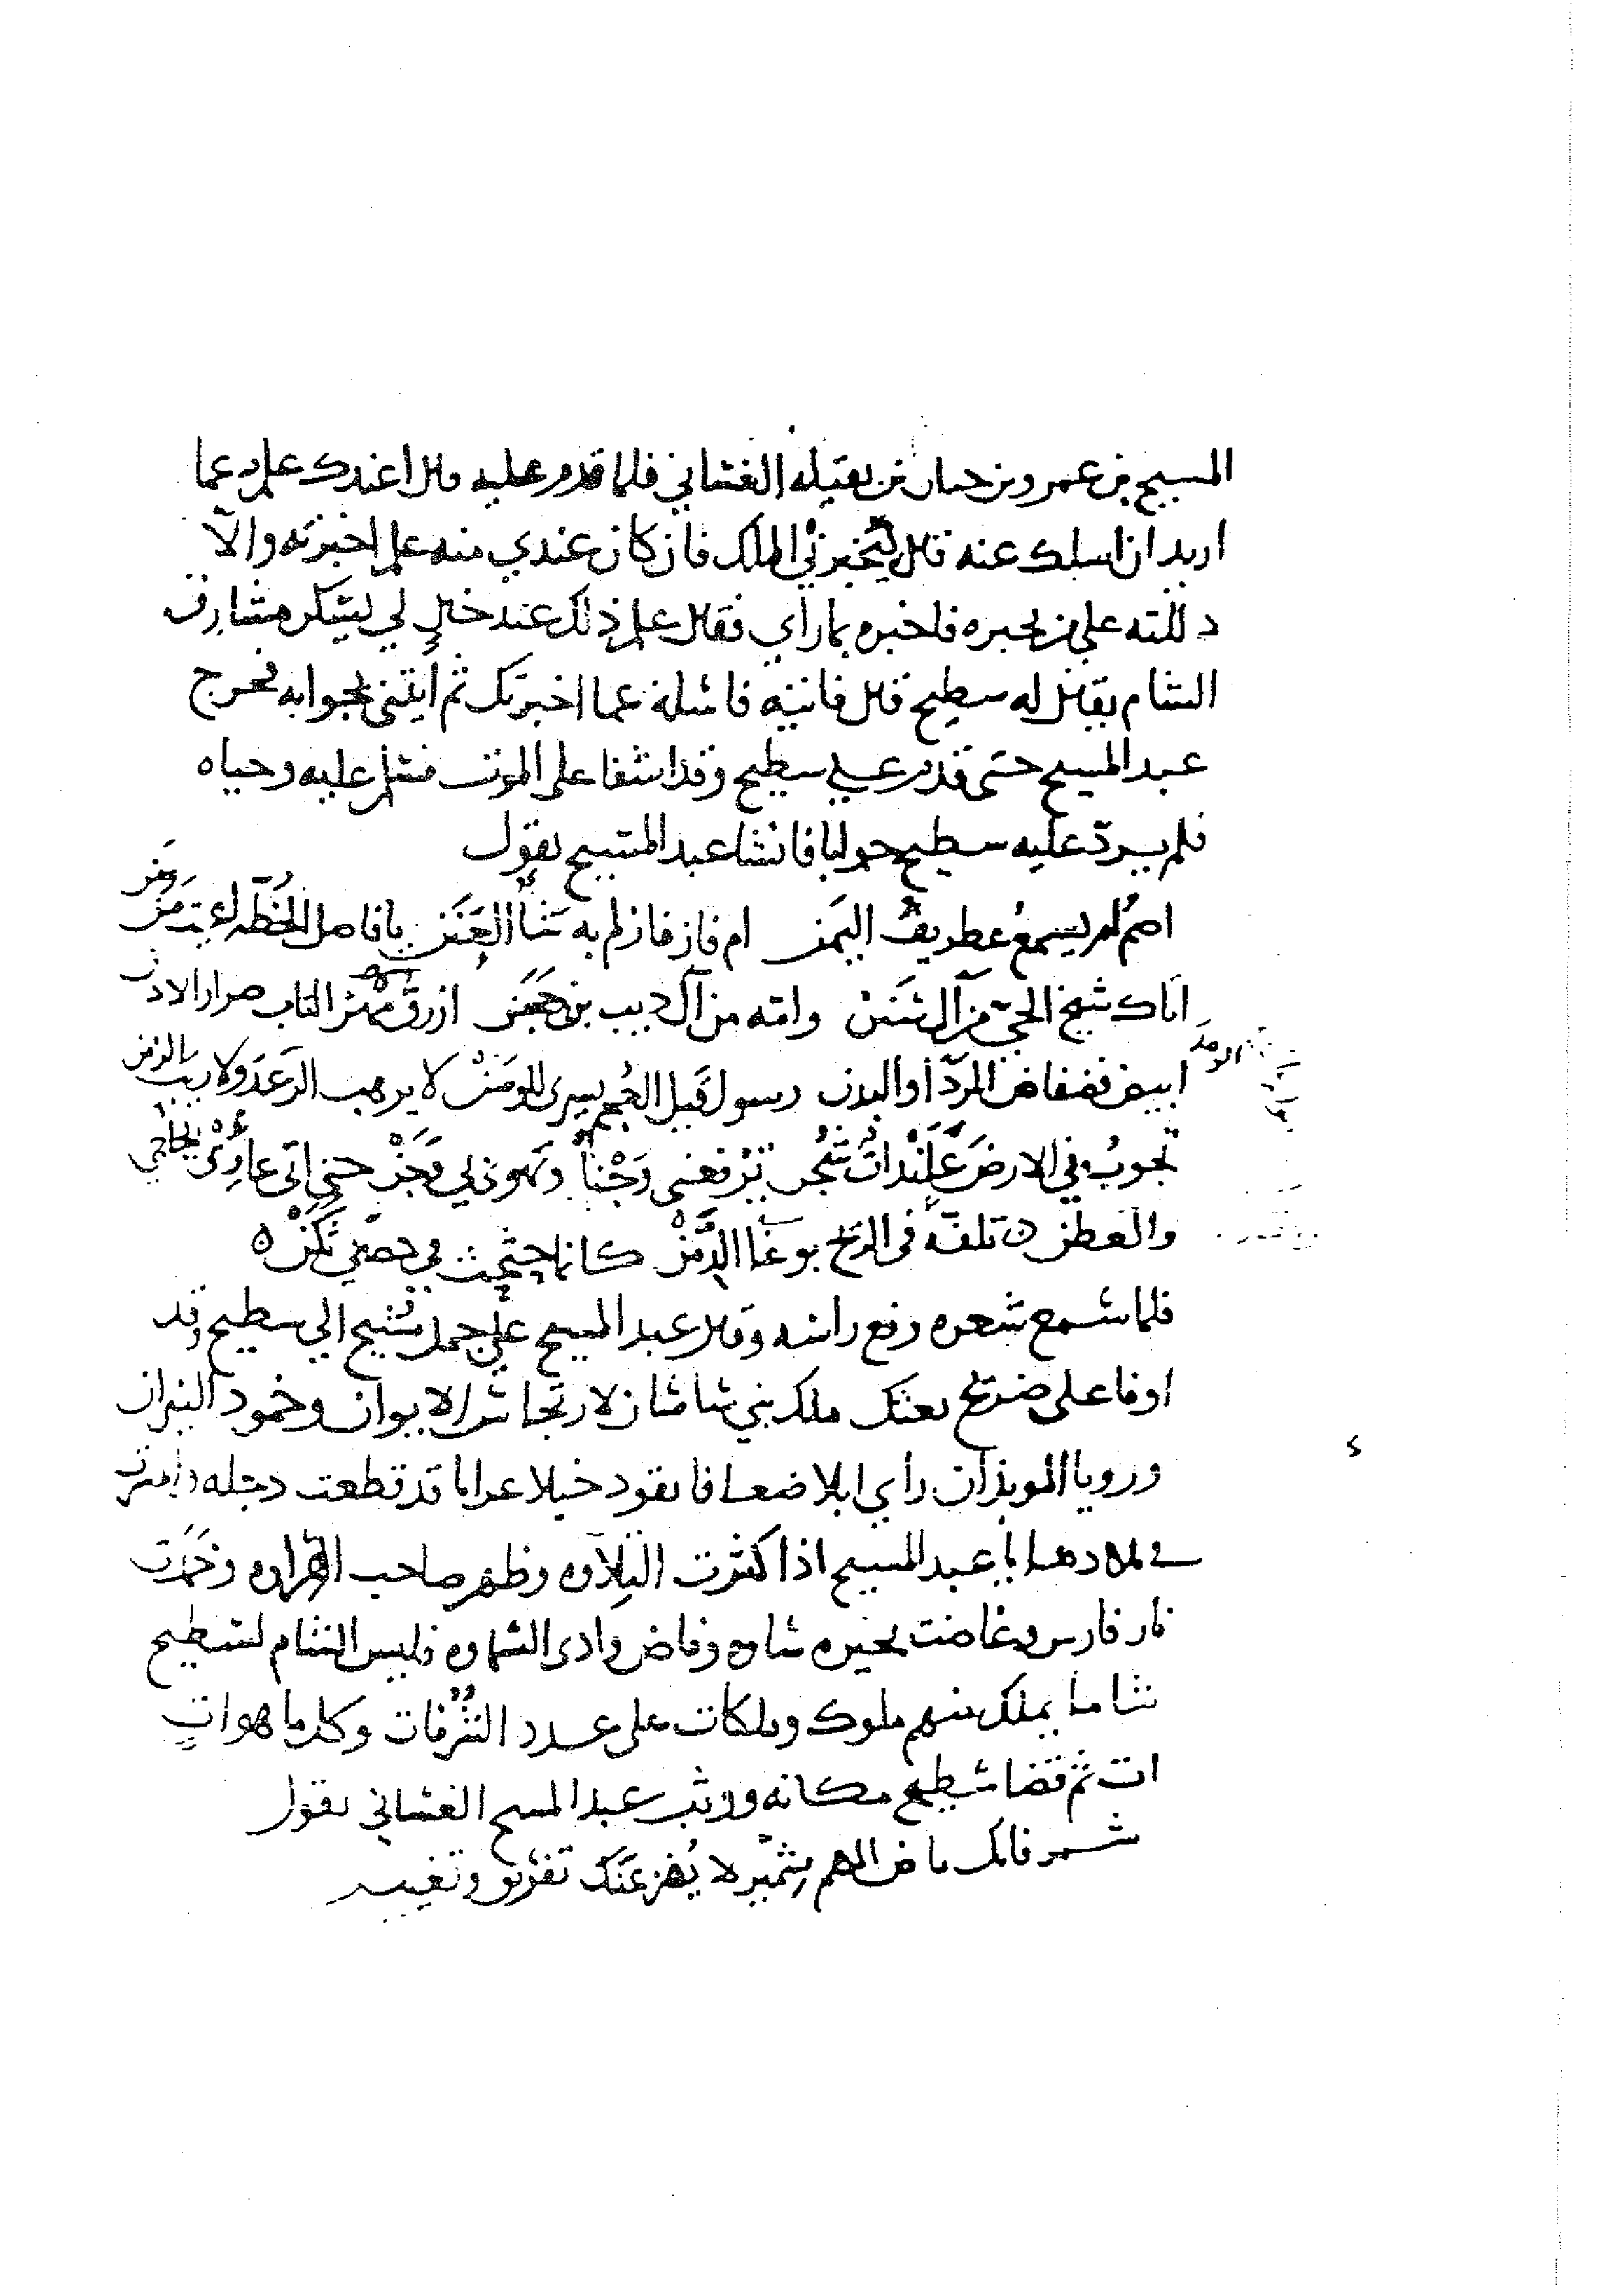 المسيح بن عمرو بن حسان بن بقيله الغساني فلما قدم عليه قال اعندك علم عما
اريد ان اسلك عنه قال ليخبرني الملك فان كان عندي منه علم اخبرته والا
دللته على من يخبره فاخبره بما رأي فقال علم ذلك عند خالٍ لي يسكن مشارف
الشام يقال له سطيح قال فاتيه فاسله عما اخبرتك ثم ايتني بجوابه فخرج
عبد المسيح حتى قدم على سطيح وقد اشفا على الموت فسلم عليه وحياه
فلم يرد عليه سطيح جوابا فانشا عبد المسيح يقول
اصم ام يسمع غطريف اليمن ام فاز فازلم به شأو العنن يا فاصل الخطه اعيت من ومن
اتاك شيخ الحي من آل سنن وامه من آل ديب بن حجن ازرق الناب صرار الاذن
ابيض فضفاض الردآ والبدن رسول قيل العجم يسرى للوسن لا يرهب الرعد ولا ريب الزمن
تجوب في الارض علنداة شجن ترفعني وجنًا وتهوي بي وجن حتى اتى عاري الجاجي
والقطن تلفه في الريح بوغا الدمن كانما حثحث من حضني ثكن
فلما سمع شعره رفع راسه وقال عبد المسيح على جمل مشيح الي سطيح وقد
اوفا على ضريح بعثك ملك بني ساسان لارتجاس الايوان وخمود النيران
ورويا الموبذان رأي ابلا ضعافا تقود خيلا عرابا قد قطعت دجله وانتشرت
في بلادها يا عبد المسيح اذا كثرت التلاوه وظهر صاحب الهراوه وخمدت
نار فارس وغاضت بحيره ساوه وفاض وادى السماوه فليس الشام لسطيح
شاما يملك منهم ملوك وملكات على عدد الشرفات وكل ما هو اتٍ
ات ثم قضا سطيح مكانه ووثب عبد المسيح الغساني يقول
شمر فانك ماض الهم شمير لا يفزعنك تفريق وتغيير